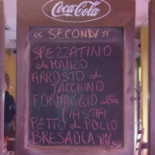 Coca-Cola
« SECONDI »
SPEZZATINO
di MANZO
ARROSTO di
TACCHINO
FORMAGGIO alla
PIASTRA
PETTO di POLLO
BRESAOLA